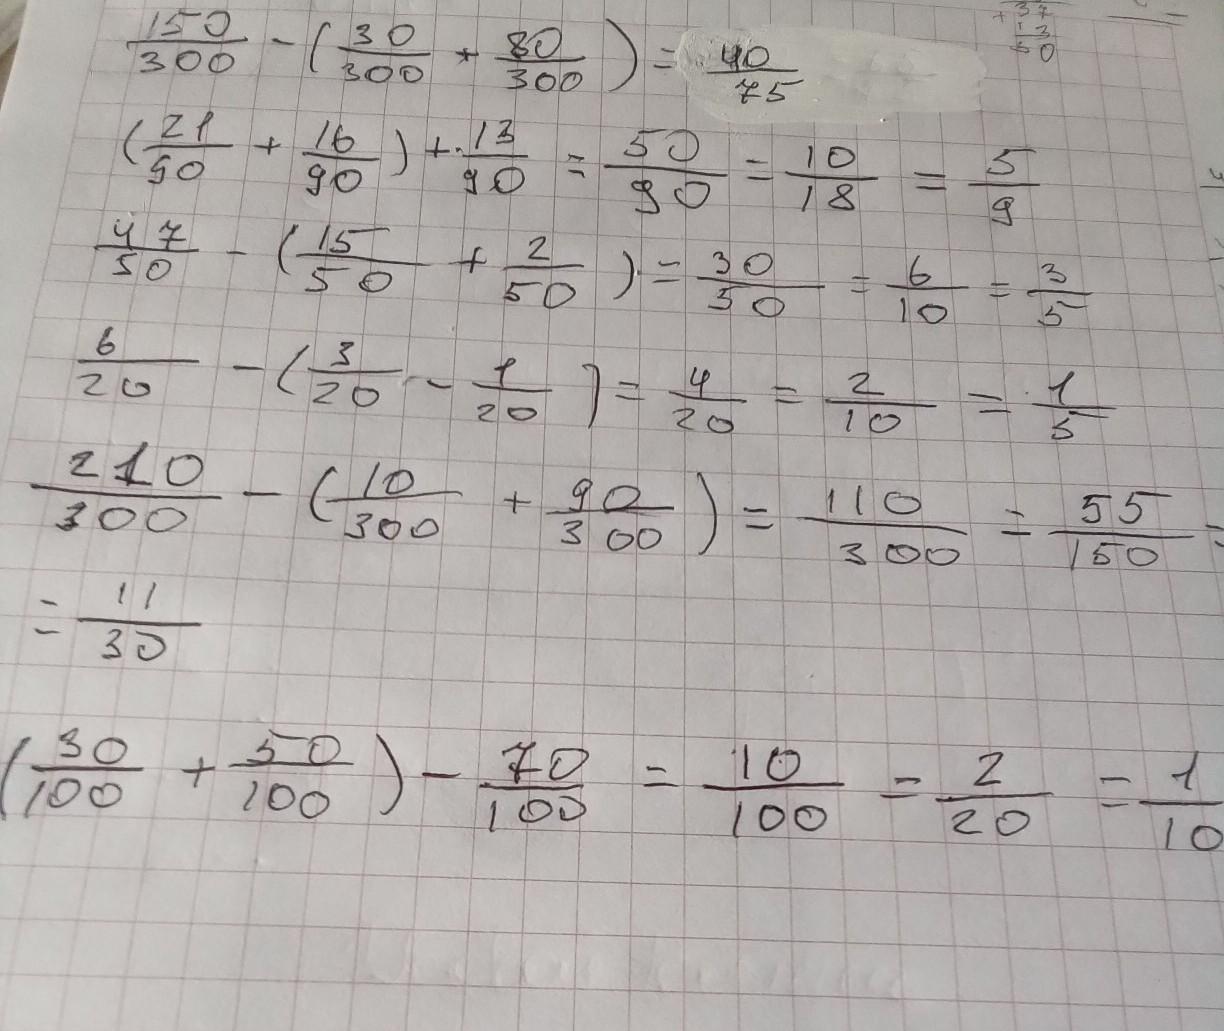 150/300 - (30/300 + 80/300) = 40/75
+ 37
13
50
(21/90 + 16/90) + 13/90 = 50/90 = 10/18 = 5/9
47/50 - (15/50 + 2/50) = 30/50 = 6/10 = 3/5
6/20 - (3/20 - 1/20) = 4/20 = 2/10 = 1/5
210/300 - (10/300 + 90/300) = 110/300 = 55/150 =
= 11/30
(30/100 + 50/100) - 70/100 = 10/100 = 2/20 = 1/10